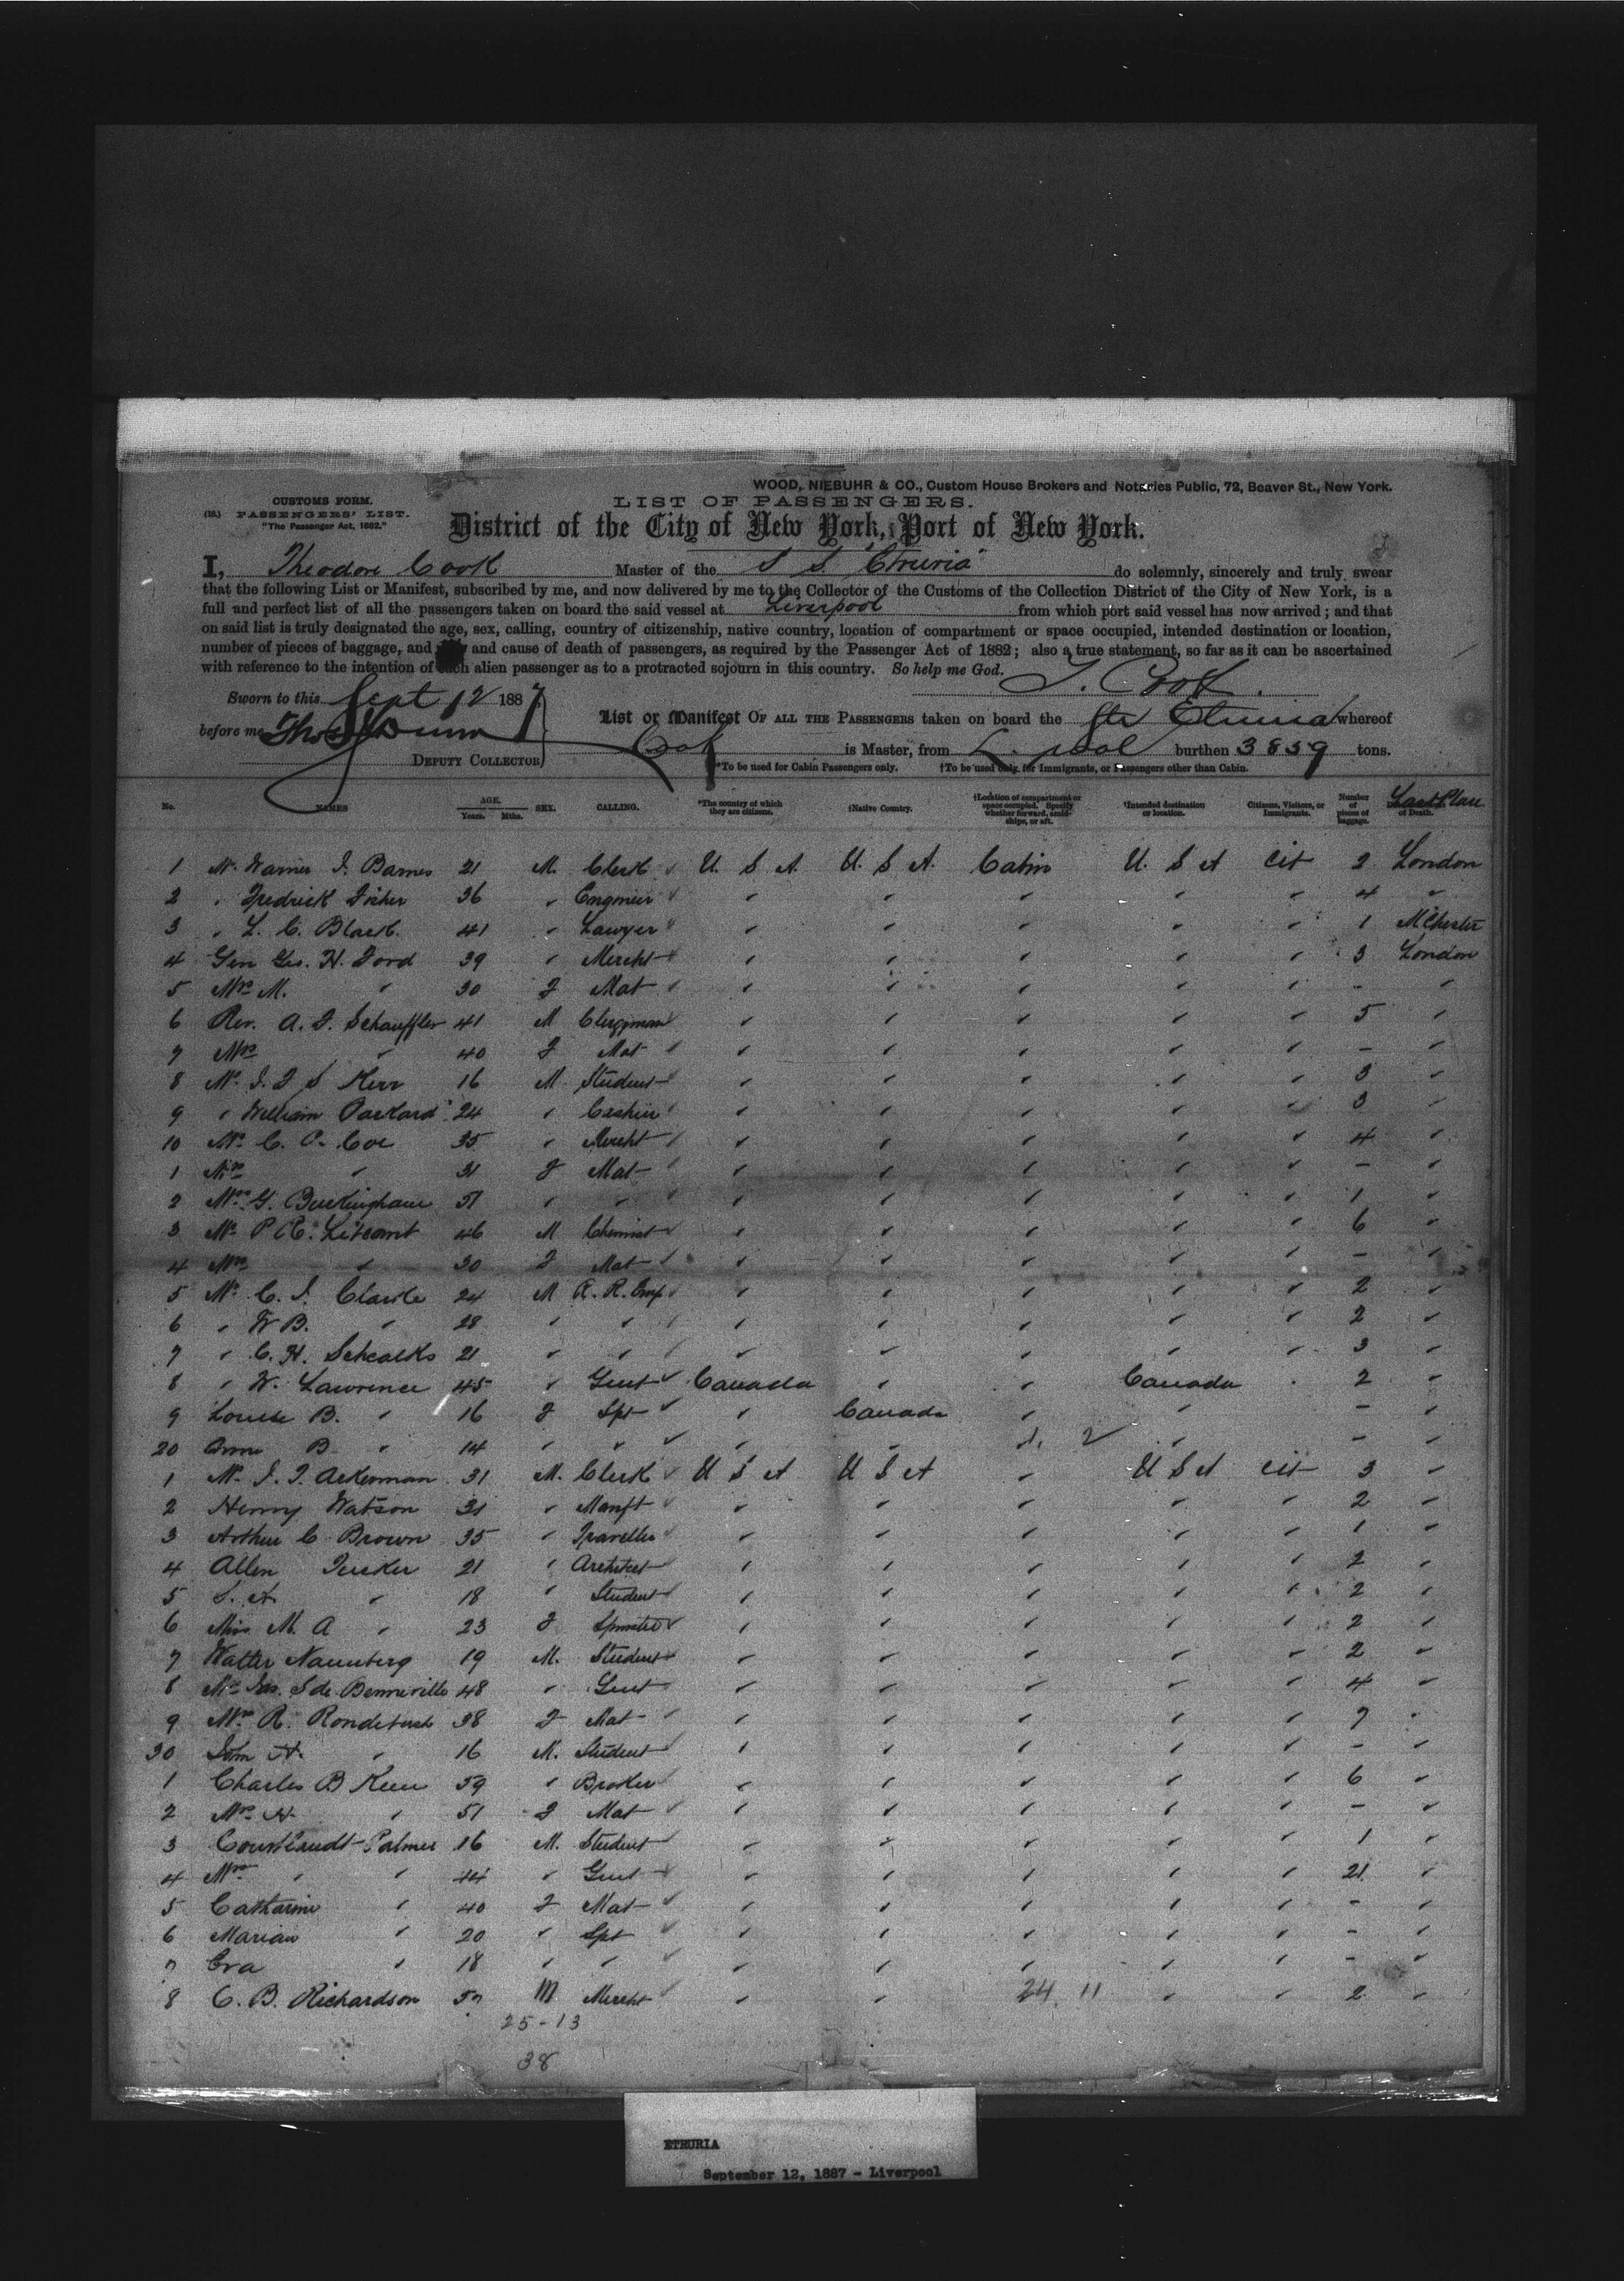 WOOD, NIEBUHR & CO., Custom House Brokers and Notaries Public, 72, Beaver St., New York.
CUSTOMS FORM.
LIST OF PASSENGERS.
(18.) PASSENGERS' LIST.
"The Passenger Act, 1882."
District of the City of New York, Port of New York.
I, Theodore Cook Master of the S S "Etruria" do solemnly, sincerely and truly swear
that the following List or Manifest, subscribed by me, and now delivered by me to the Collector of the Customs of the Collection District of the City of New York, is a
full and perfect list of all the passengers taken on board the said vessel at Liverpool from which port said vessel has now arrived; and that
on said list is truly designated the age, sex, calling, country of citizenship, native country, location of compartment or space occupied, intended destination or location,
number of pieces of baggage, and and cause of death of passengers, as required by the Passenger Act of 1882; also a true statement, so far as it can be ascertained
with reference to the intention of each alien passenger as to a protracted sojourn in this country. So help me God.
T. Cook.
Sworn to this Sept 12 1887
before me Thos Dunn
DEPUTY COLLECTOR
List or Manifest OF ALL THE PASSENGERS taken on board the Str Etruria whereof
Cook is Master, from L. pool burthen 3859 tons.
*To be used for Cabin Passengers only. †To be used only for Immigrants, or Passengers other than Cabin.
No. NAMES AGE. Years. Mths. SEX. CALLING. *The country of which they are citizens. †Native Country. †Location of compartment or space occupied. Specify whether forward, amidships, or aft. †Intended destination or location. Citizens, Visitors, or Immigrants. Number of pieces of baggage. Last Place of Death.
1 Mr. Warner I. Barnes 21 M. Clerk U. S A. U. S A. Cabin U. S A cit 2 London
2 " Fredrick Fisher 36 " Engineer " " " " " 4 "
3 " L. C. Black. 41 " Lawyer " " " " " 1 M'Chester
4 Gen Geo. H. Ford 39 " Mercht " " " " " 3 London
5 Mrs M. " 30 F Mat " " " " " - "
6 Rev. A. F. Schauffler 41 M Clergyman " " " " " 5 "
7 Mrs " 40 F Mat " " " " " - "
8 Mr. I. F S Kerr 16 M Student " " " " " 3 "
9 " William Packard 24 " Cashier " " " " " 3 "
10 Mr. C. P. Coe 35 " Mercht " " " " " 4 "
1 Mrs " 31 F Mat " " " " " - "
2 Mrs G. Buckingham 51 " " " " " " " 1 "
3 Mr. P. C. 46 M Chemist " " " " " 6 "
4 Mrs " 30 F Mat " " " " " - "
5 Mr. C. I. Clarke 24 M R. R. Emp " " " " " 2 "
6 " W B. " 28 " " " " " " " 2 "
7 " C. H. 21 " " " " " " " 3 "
8 " W. Lawrence 45 " Gent Canada " " Canada " 2 "
9 Louise B. " 16 F Spt " Canada " " - "
20 Anna B " 14 " " " " " 2 " - "
1 Mr. I. I. Ackerman 31 M. Clerk U S A U S A " U S A cit 3 "
2 Henry Watson 31 " Manft " " " " " 2 "
3 Arthur C Brown 35 " Traveller " " " " " 1 "
4 Allen Tucker 21 " Architect " " " " " 2 "
5 S. A. " 18 " Student " " " " " 2 "
6 Miss M. A " 23 F Spinster " " " " " 2 "
7 Walter Naumberg 19 M. Student " " " " " 2 "
8 Mr Jas. S de Benneville 48 " Gent " " " " " 4 "
9 Mrs R. Rondebush 38 F Mat " " " " " 7 "
30 John A. " 16 M. Student " " " " " - "
1 Charles B Keen 59 " Broker " " " " " 6 "
2 Mrs A. " 51 F Mat " " " " " - "
3 Courtlandt Palmer 16 M. Student " " " " " 1 "
4 " 44 " Gent " " " " " 21 "
5 Catharine " 40 F Mat " " " " " - "
6 Marian " 20 " Spt " " " " " - "
7 Eva " 18 " " " " " " " - "
8 C. B. Richardson 57 M Mercht " " 24 11 " " 2 "
25-13
38
ETHURIA
September 12, 1887 - Liverpool